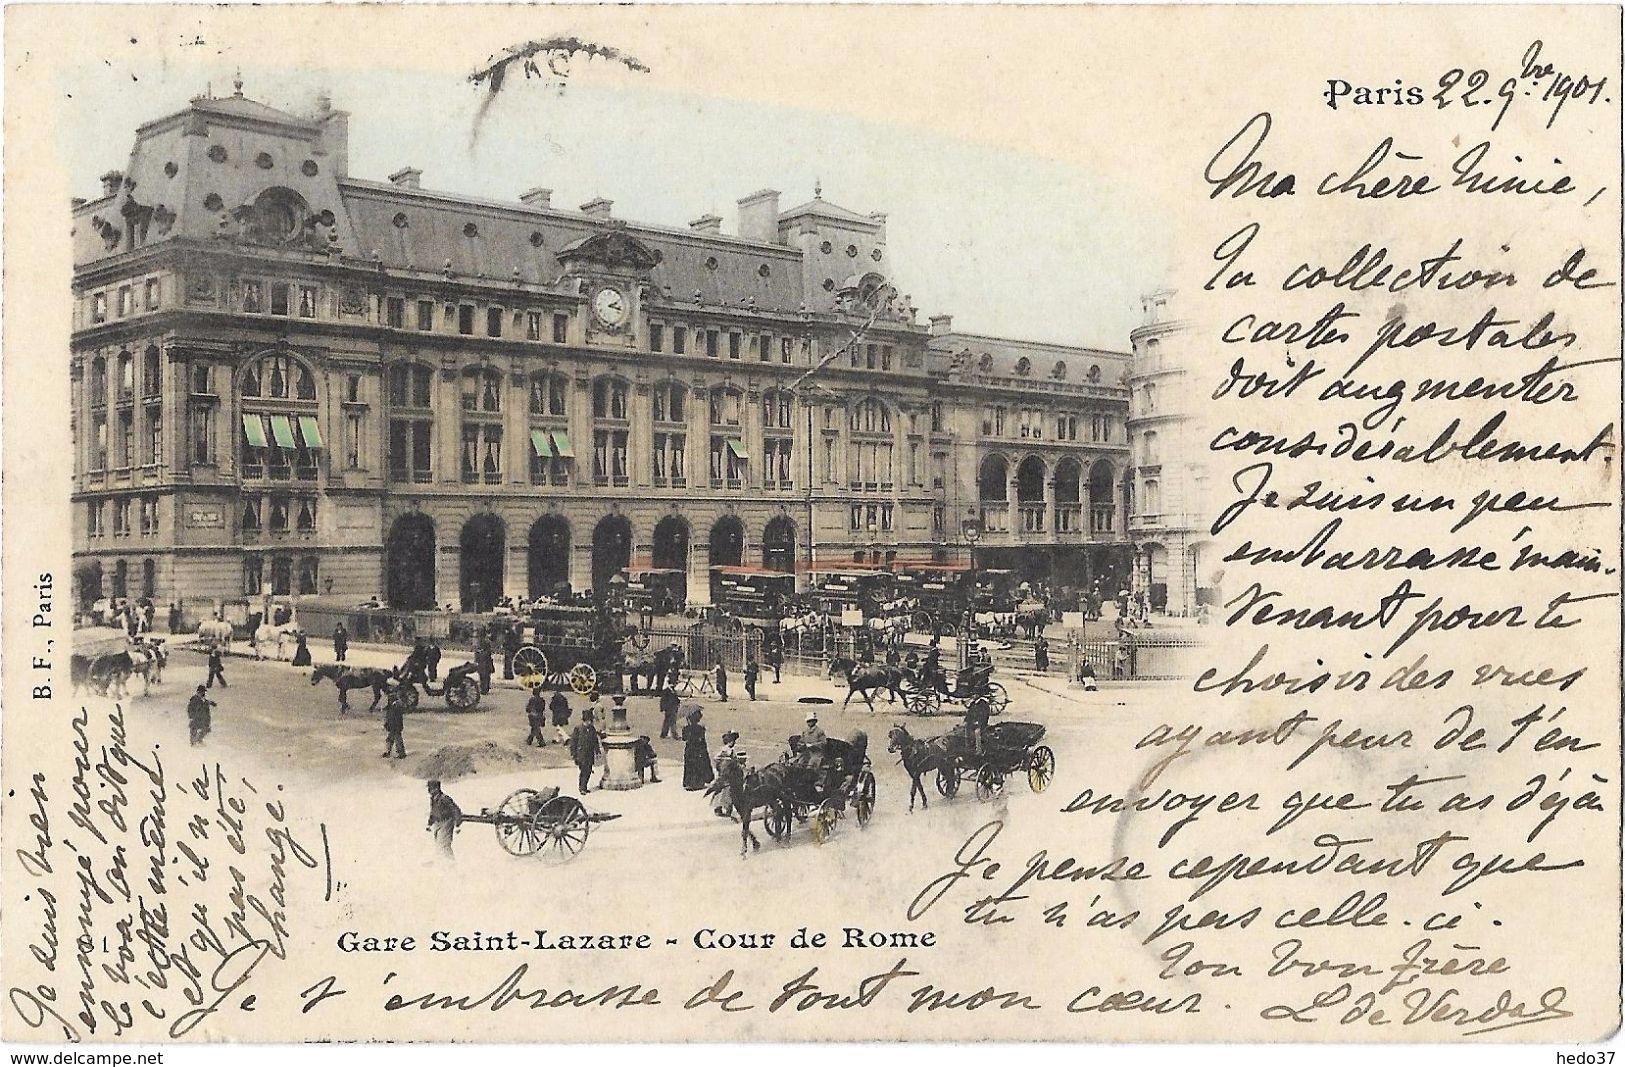 Paris 22. 9bre 1901.
Ma chère Ninie,
Ta collection de
cartes postales
doit augmenter
considérablement.
Je suis un peu
embarrassé main-
tenant pour te
choisir des vues
ayant peur de t'en
envoyer que tu as déjà
Je pense cependant que
tu n'as pas celle-ci.
Ton bon frère
L de Verdal
Je t'embrasse de tout mon cœur.
Je suis bien
ennuyé pour
le on dit que
c'était même
et qu'il n'a
pas été
changé.
B. F., Paris
Gare Saint-Lazare - Cour de Rome
http://www.delcampe.net
hedo37